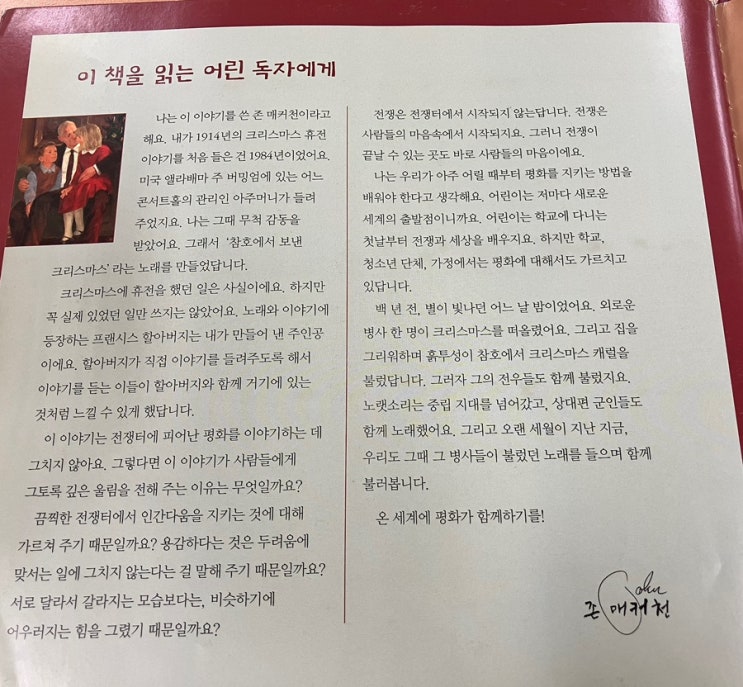 이 책을 읽는 어린 독자에게
나는 이 이야기를 쓴 존 매커천이라고
해요. 내가 1914년의 크리스마스 휴전
이야기를 처음 들은 건 1984년이었어요.
미국 앨라배마 주 버밍엄에 있는 어느
콘서트홀의 관리인 아주머니가 들려
주었지요. 나는 그때 무척 감동을
받았어요. 그래서 ‘참호에서 보낸
크리스마스’라는 노래를 만들었답니다.
크리스마스에 휴전을 했던 일은 사실이에요. 하지만
꼭 실제 있었던 일만 쓰지는 않았어요. 노래와 이야기에
등장하는 프랜시스 할아버지는 내가 만들어 낸 주인공
이에요. 할아버지가 직접 이야기를 들려주도록 해서
이야기를 듣는 이들이 할아버지와 함께 거기에 있는
것처럼 느낄 수 있게 했답니다.
이 이야기는 전쟁터에 피어난 평화를 이야기하는 데
그치지 않아요. 그렇다면 이 이야기가 사람들에게
그토록 깊은 울림을 전해 주는 이유는 무엇일까요?
끔찍한 전쟁터에서 인간다움을 지키는 것에 대해
가르쳐 주기 때문일까요? 용감하다는 것은 두려움에
맞서는 일에 그치지 않는다는 걸 말해 주기 때문일까요?
서로 달라서 갈라지는 모습보다는, 비슷하기에
어우러지는 힘을 그렸기 때문일까요?
전쟁은 전쟁터에서 시작되지 않는답니다. 전쟁은
사람들의 마음속에서 시작되지요. 그러니 전쟁이
끝날 수 있는 곳도 바로 사람들의 마음이에요.
나는 우리가 아주 어릴 때부터 평화를 지키는 방법을
배워야 한다고 생각해요. 어린이는 저마다 새로운
세계의 출발점이니까요. 어린이는 학교에 다니는
첫날부터 전쟁과 세상을 배우지요. 하지만 학교,
청소년 단체, 가정에서는 평화에 대해서도 가르치고
있답니다.
백 년 전, 별이 빛나던 어느 날 밤이었어요. 외로운
병사 한 명이 크리스마스를 떠올렸어요. 그리고 집을
그리워하며 흙투성이 참호에서 크리스마스 캐럴을
불렀답니다. 그러자 그의 전우들도 함께 불렀지요.
노랫소리는 중립 지대를 넘어갔고, 상대편 군인들도
함께 노래했어요. 그리고 오랜 세월이 지난 지금,
우리도 그때 그 병사들이 불렀던 노래를 들으며 함께
불러봅니다.
온 세계에 평화가 함께하기를!
John
존 매커천